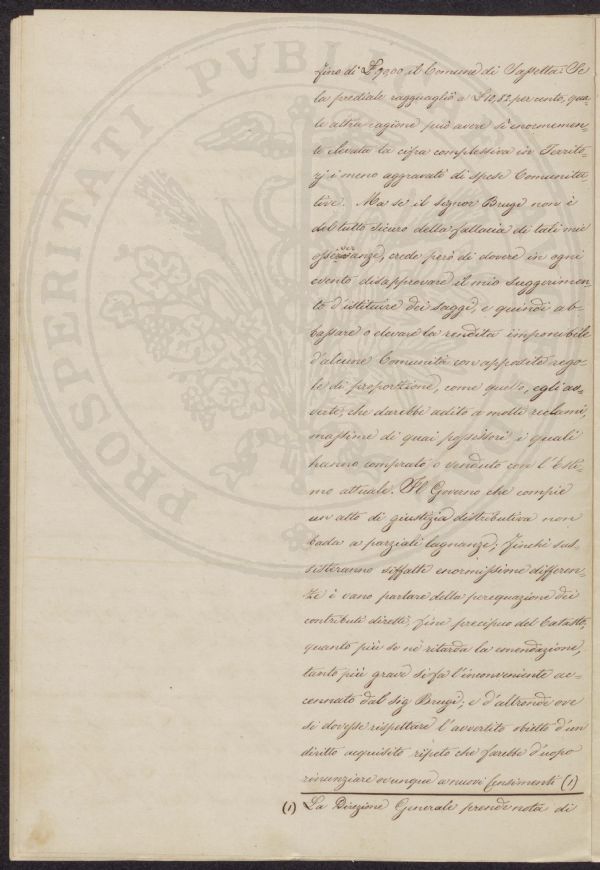 fino di £ 9900 il Comune di Sassetta: Se
la prediale ragguagliò a £ 10,52. per cento, qua=
le altra cagione può avere sì enormemen=
te elevata la cifra complessiva in Territo=
rj i meno aggravati di spese Comunita=
tive. Ma se il signor Brugi non è
del tutto sicuro della fallacia di tali mie
osservanze, crede però di dovere in ogni
evento disapprovare il mio suggerimen=
to d'istituire dei saggi, e quindi ab=
bassare o elevare la rendita imponibile
d'alcune Comunità con apposite rego=
le di proporzione, come quelo, egli av=
verte, che darebbe adito a molti reclami,
massime di quai possessori i quali
hanno comprato o venduto con l'Esti=
mo attuale. Il Governo che compie
un atto di giustizia distributiva non
bada a parziali lagnanze; finchè sus=
sisteranno siffatte enormissime differen=
ze è vano parlare della perequazione dei
contributi diretti, fine precipuo del Catasto,
quanto più se ne ritarda la emendazione,
tanto più grave si fa l'inconveniente ac=
cennato dal sig Brugi; e d'altronde ove
si dovesse rispettare l'avvertito obietto d'un
diritto acquisito ripeto che farebbe d'uopo
rinunziare ovunque a nuovi Censimenti (1)
(1) La Direzione Generale prende nota di
PROSPERITATI PVBLI